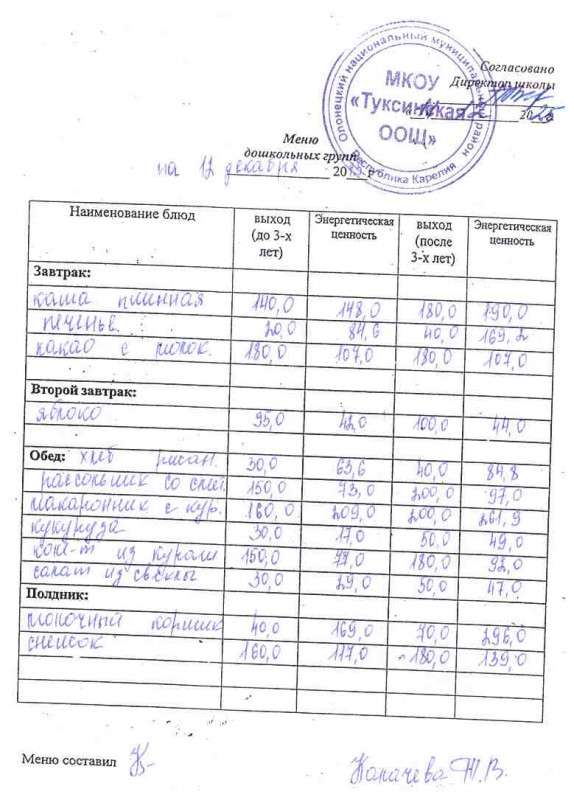 Согласовано
Директор школы
20 25
Олонецкий национальный муниципальный район
Республика Карелия
МКОУ
«Туксинская
ООШ»
Меню
дошкольных групп
на 12 декабря 20 г
Наименование блюд | выход (до 3-х лет) | Энергетическая ценность | выход (после 3-х лет) | Энергетическая ценность
Завтрак:
каша пшенная 140,0 148,0 180,0 190,0
печенье. 20,0 84,6 40,0 169,2
какао с молок. 180,0 107,0 180,0 107,0
Второй завтрак:
яблоко 95,0 42,0 100,0 44,0
Обед: хлеб ржан. 30,0 63,6 40,0 84,8
рассольник со смет 150,0 73,0 200,0 97,0
макаронник с кур. 160,0 209,0 200,0 261,9
кукуруза 30,0 17,0 50,0 49,0
комп-т из кураги 150,0 77,0 180,0 92,0
салат из свеклы 30,0 29,0 50,0 47,0
Полдник:
молочный коржик 40,0 169,0 70,0 296,0
снежок 160,0 117,0 180,0 139,0
Меню составил
Капачева Т.В.